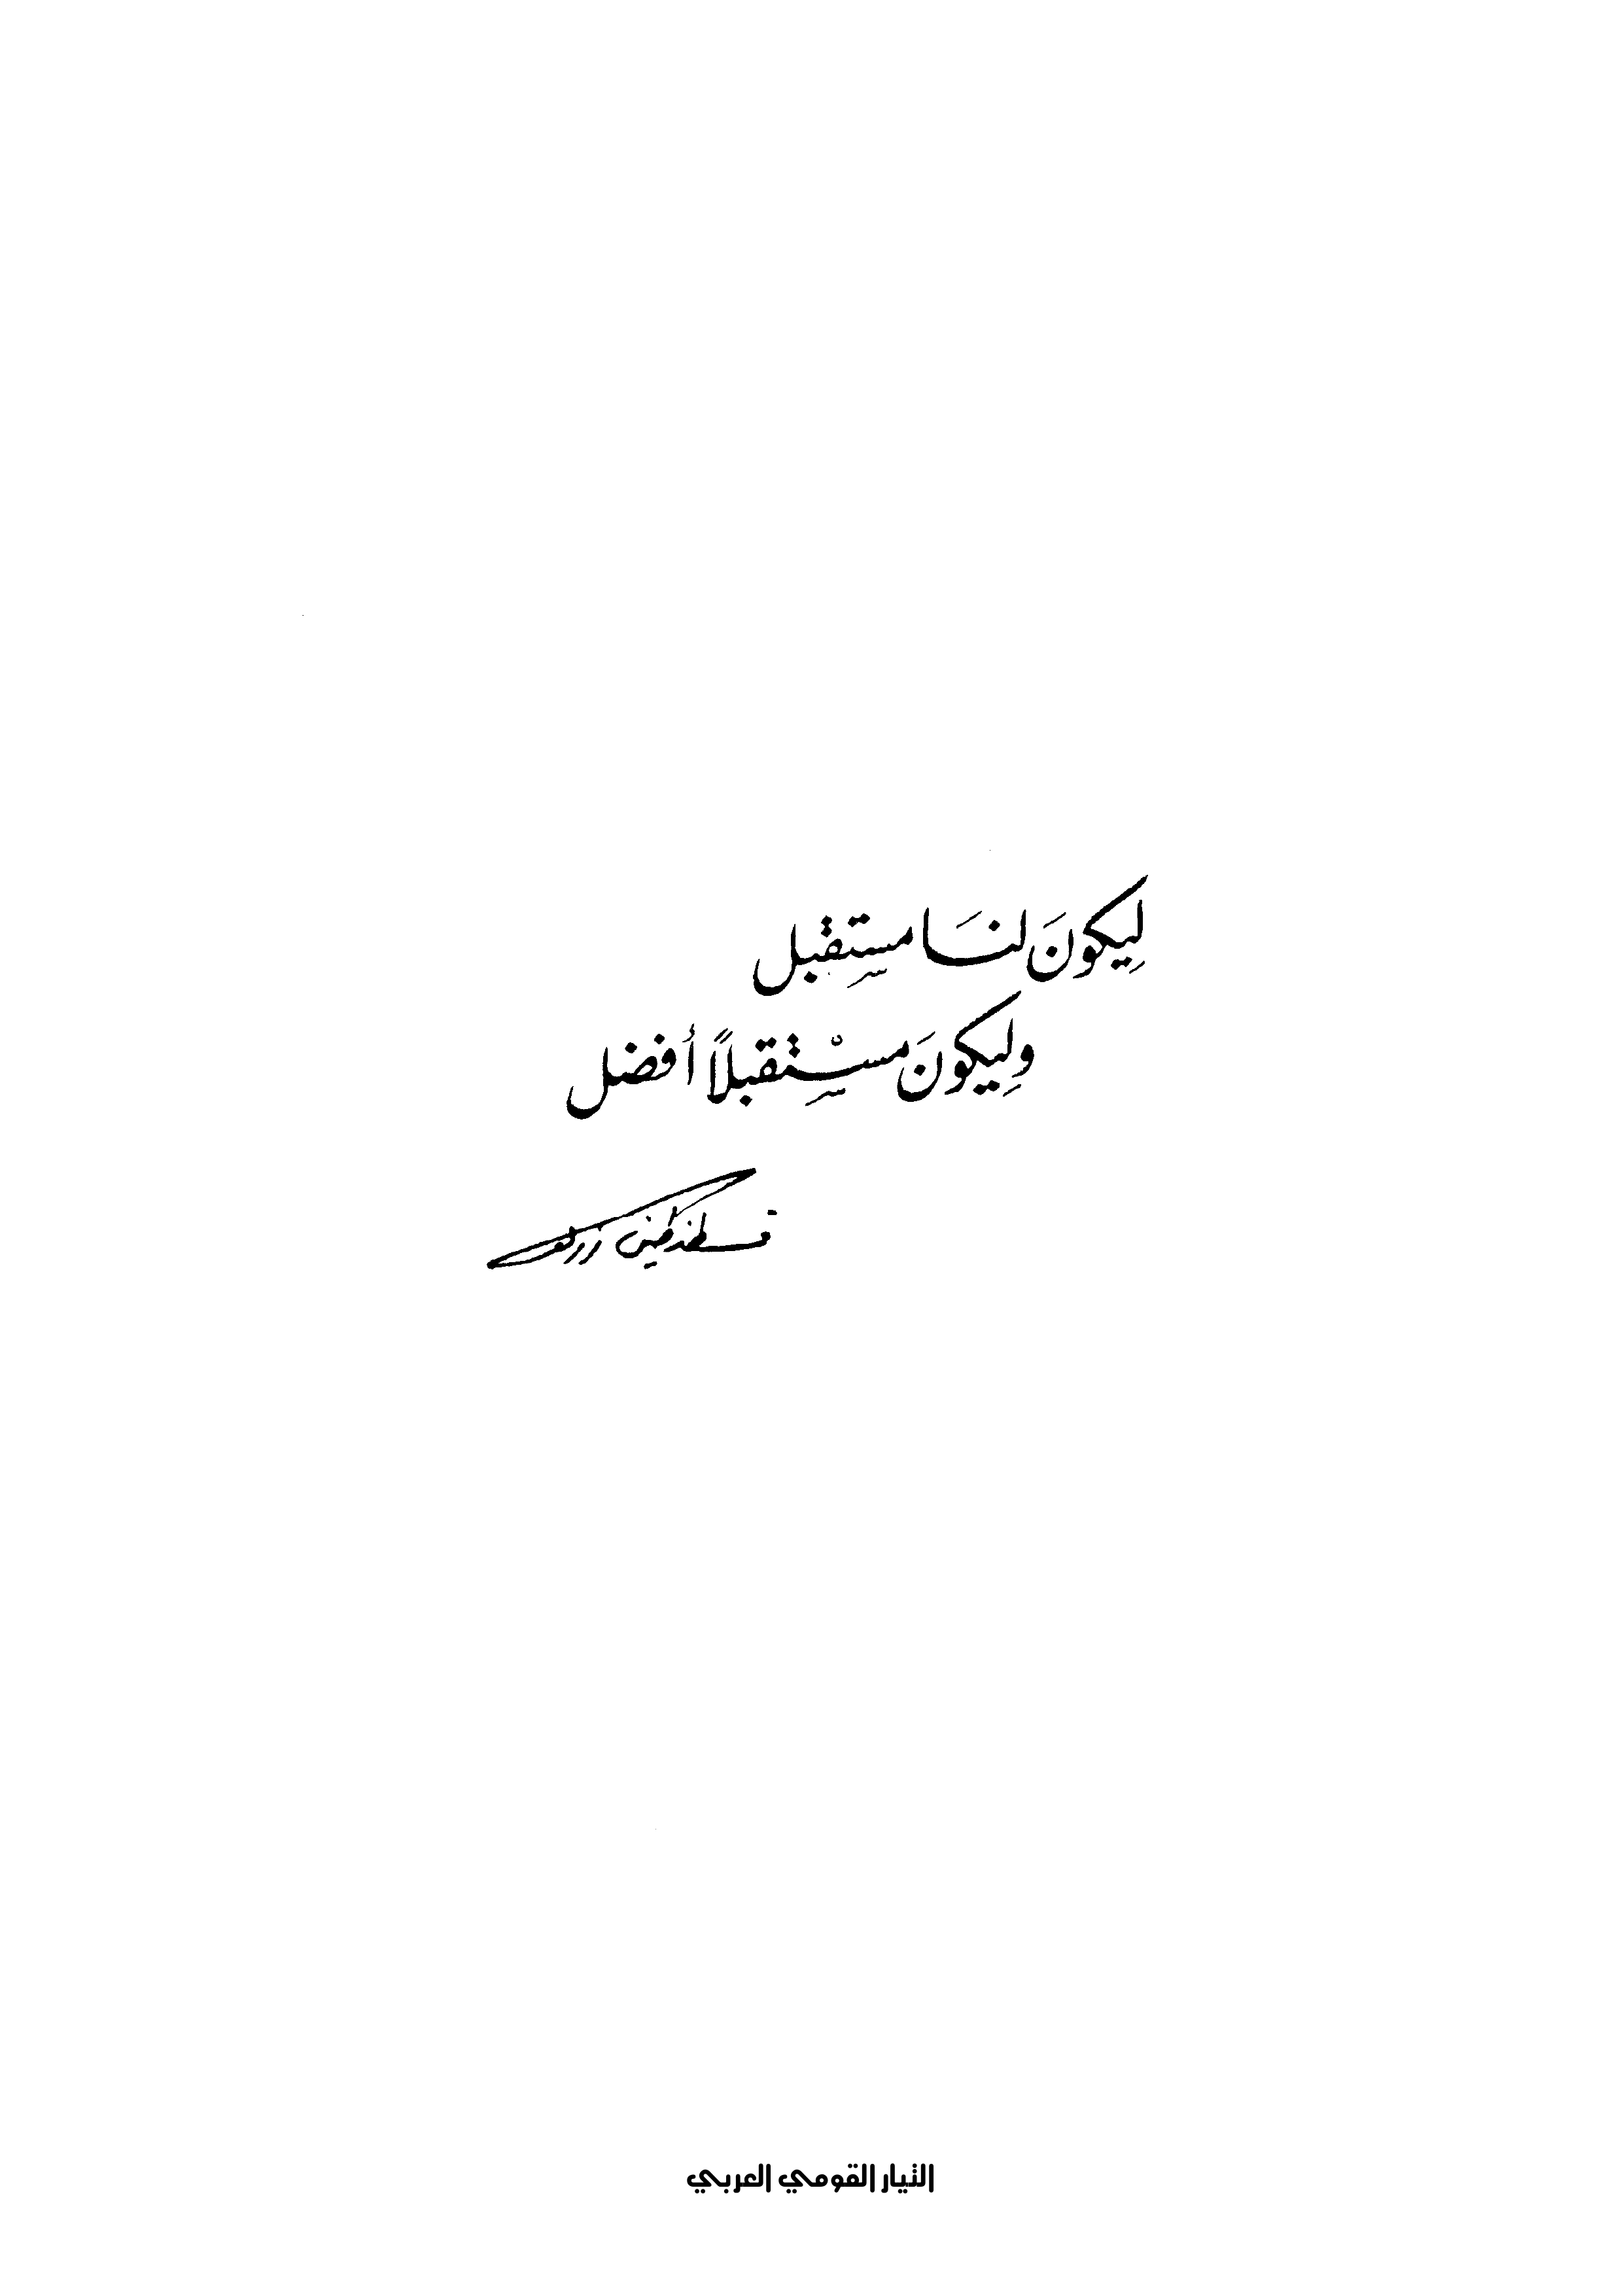 لِيكونَ لنَا مستقبل
ولِيكونَ مسْتقبلاً أفضل
قسطنطين زريق
التيار القومي العربي